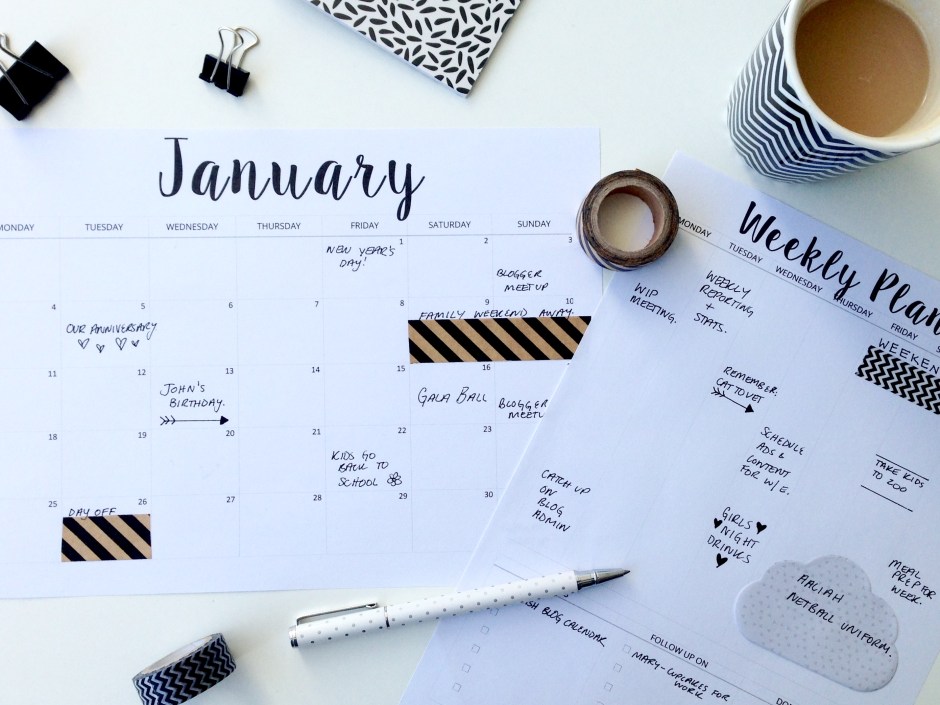 January
MONDAY TUESDAY WEDNESDAY THURSDAY FRIDAY SATURDAY SUNDAY
1 2 3
NEW YEAR'S
DAY!
BLOGGER
MEETUP
4 5 6 7 8 9 10
OUR ANNIVERSARY
FAMILY WEEKEND AWAY.
11 12 13 14 15 16
JOHN'S
BIRTHDAY.
GALA BALL
BLOGGER
18 19 20 21 22 23
KIDS GO
BACK TO
SCHOOL
25 26 27 28 29 30
DAY OFF
Weekly
MONDAY TUESDAY WEDNESDAY THURSDAY FRIDAY
WIP
MEETING.
WEEKLY
REPORTING
+
STATS.
REMEMBER
CAT TO VET
SCHEDULE
ADS &
CONTENT
FOR W/E.
TAKE KIDS
TO ZOO
CATCH UP
ON
BLOG
ADMIN
GIRLS
NIGHT
DRINKS
MEAL
PREP FOR
WEEK.
AALIAH
NETBALL UNIFORM.
BLOG CALENDAR
FOLLOW UP ON
MARY - CUPCAKES FOR
WORK